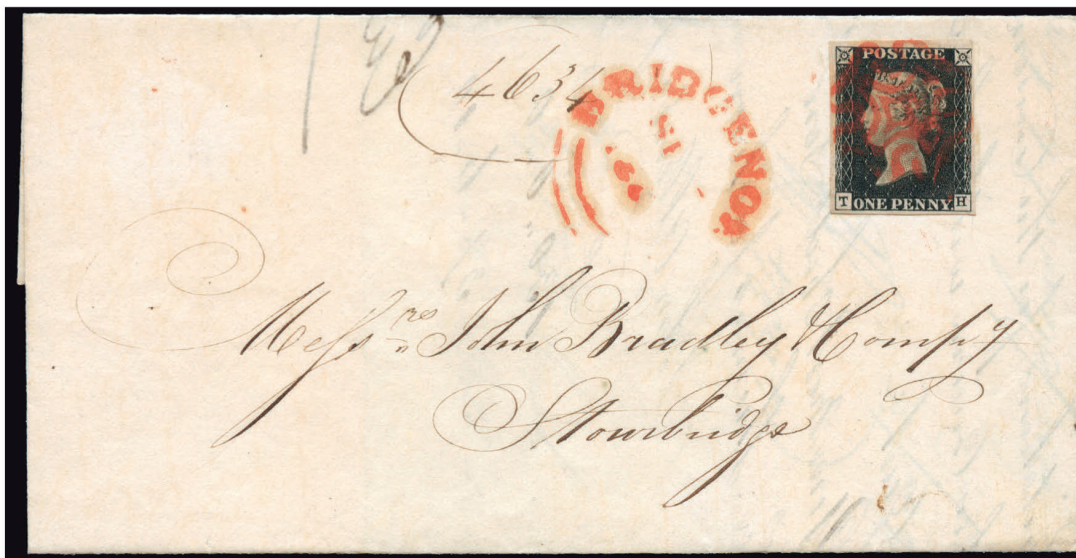 4634
BRIDGENO
POSTAGE
T ONE PENNY. H
Messrs John Bradley & Compy
Stourbridge